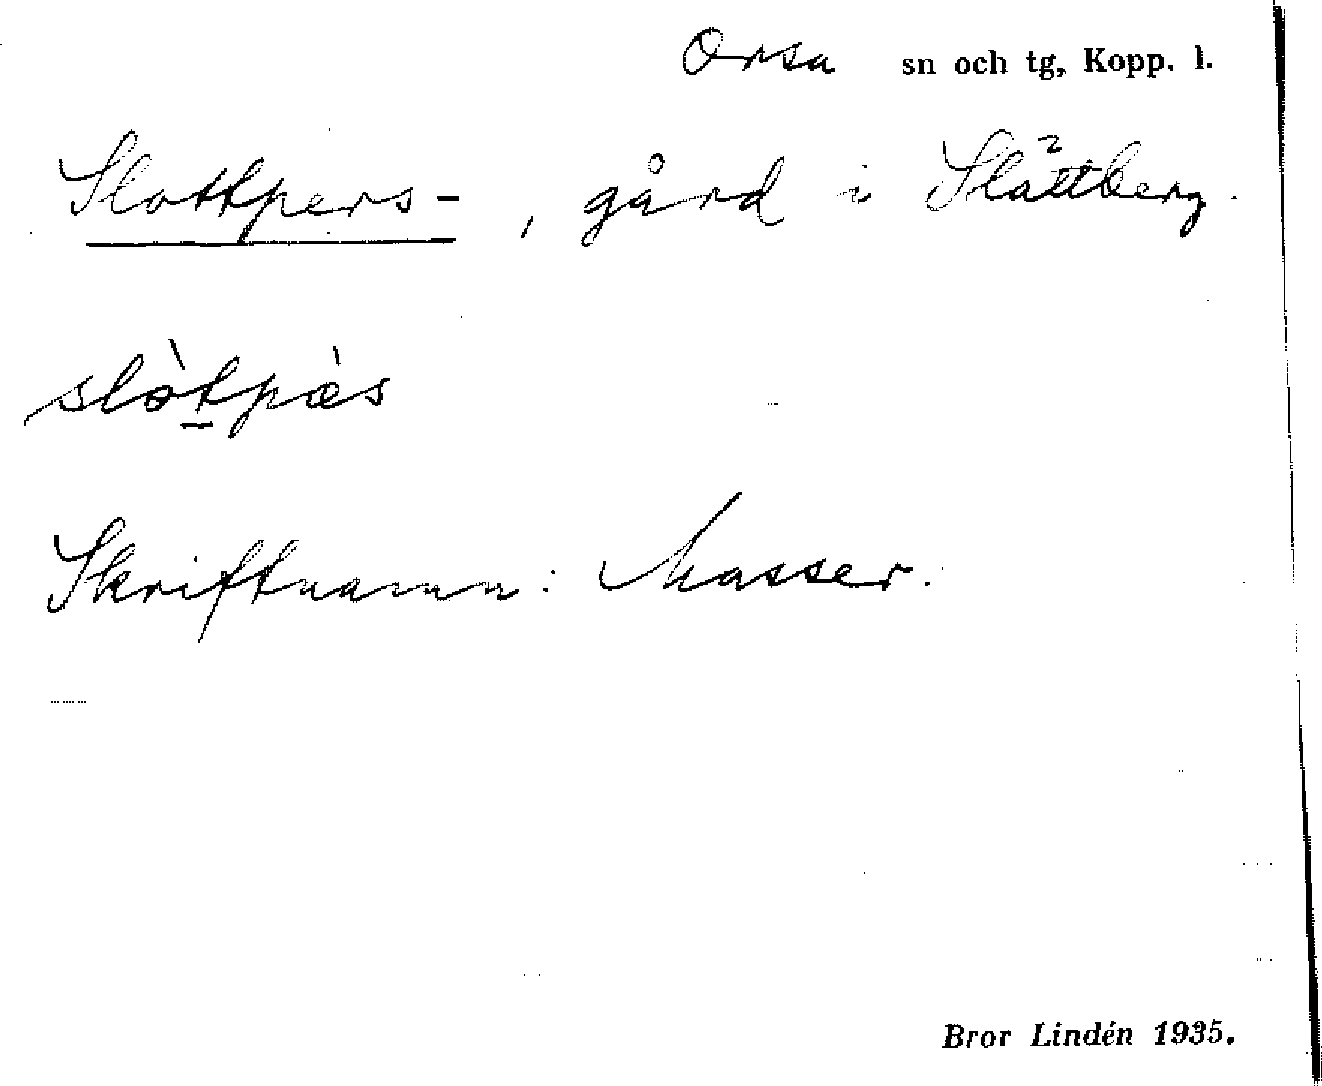 Orsa sn och tg, Kopp. l.
Slottpers-, gård i Slättberg.
slòt̲pæ̀s
Skriftnamn: Masser.
Bror Lindén 1935.